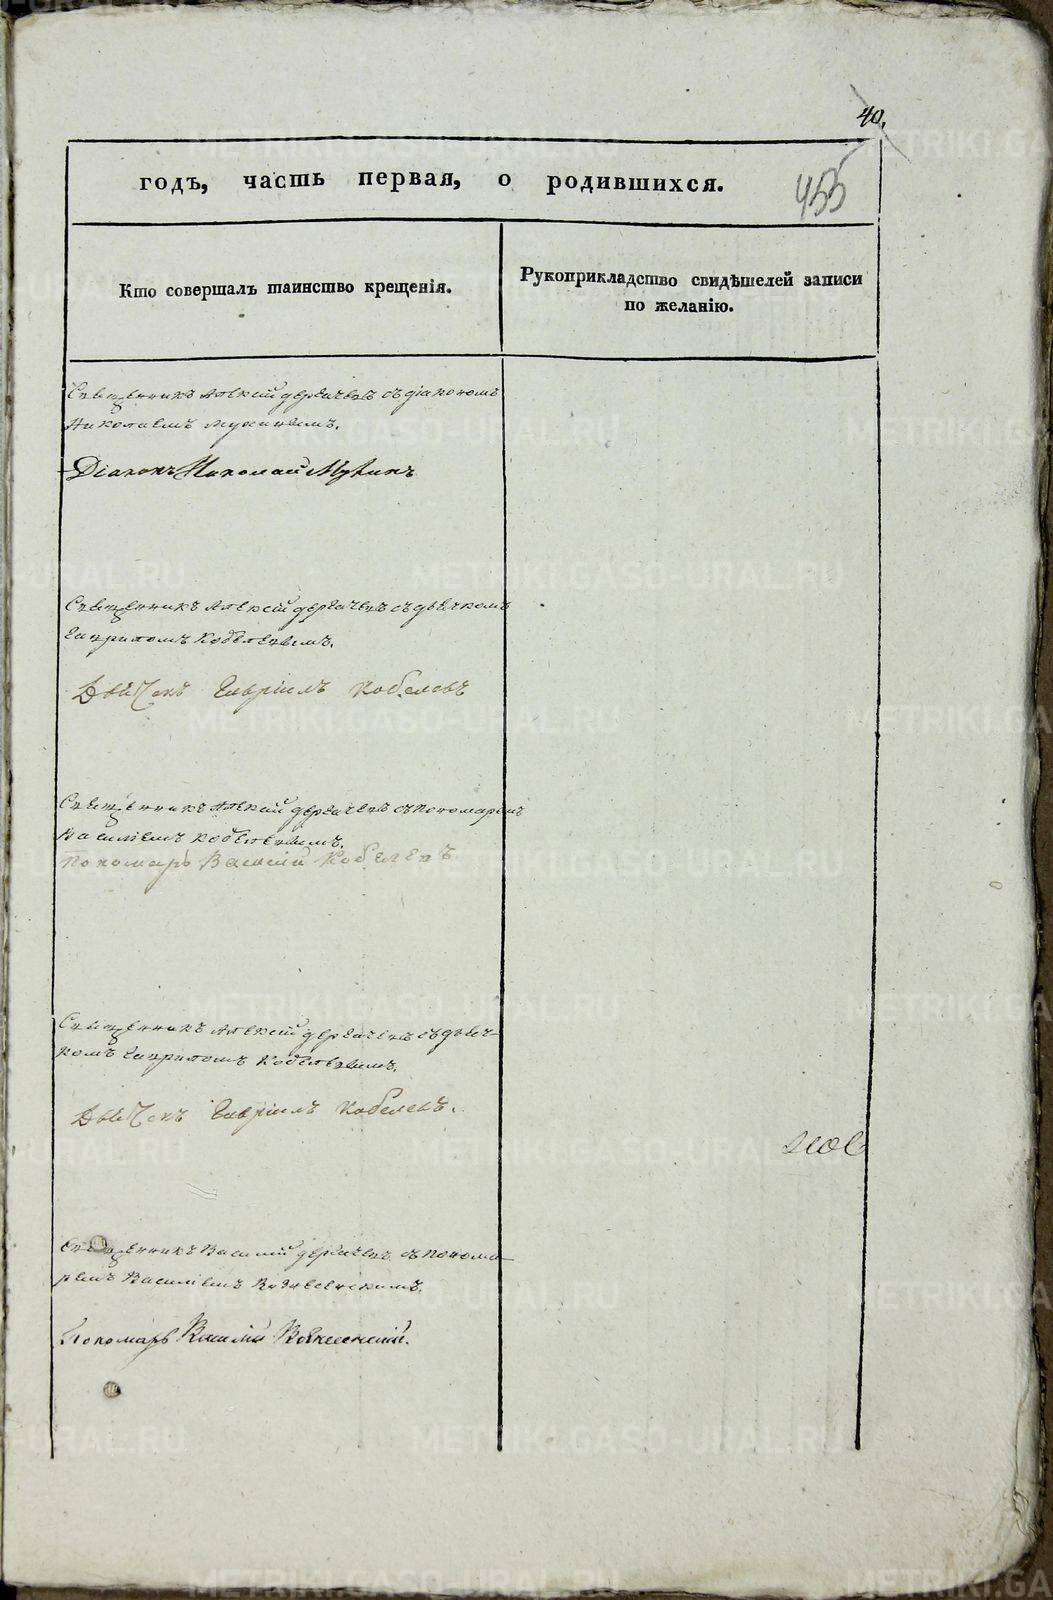 40.
годъ, часть первая, о родившихся.
455
Кто совершалъ таинство крещенія.
Рукоприкладство свидѣтелей записи
по желанію.
Священникъ Алексій Дергачевъ съ діакономъ
Николаемъ Мухинымъ.
Діаконъ Николай Мухинъ
Священникъ Алексій Дергачевъ съ дьячкомъ
Гавриломъ Кобелевымъ.
Дьячокъ Гавріилъ Кобелевъ
Священникъ Алексій Дергачевъ съ пономаремъ
Василіемъ Кобелевымъ.
Пономарь Василій Кобелевъ
Священникъ Алексій Дергачевъ съ дьяч-
комъ Гавриломъ Кобелевымъ.
Дьячокъ Гавріилъ Кобелевъ.
Священникъ Василій Дергачевъ съ понома-
ремъ Василіемъ
Пономарь Василій
METRIKI.GASO-URAL.RU